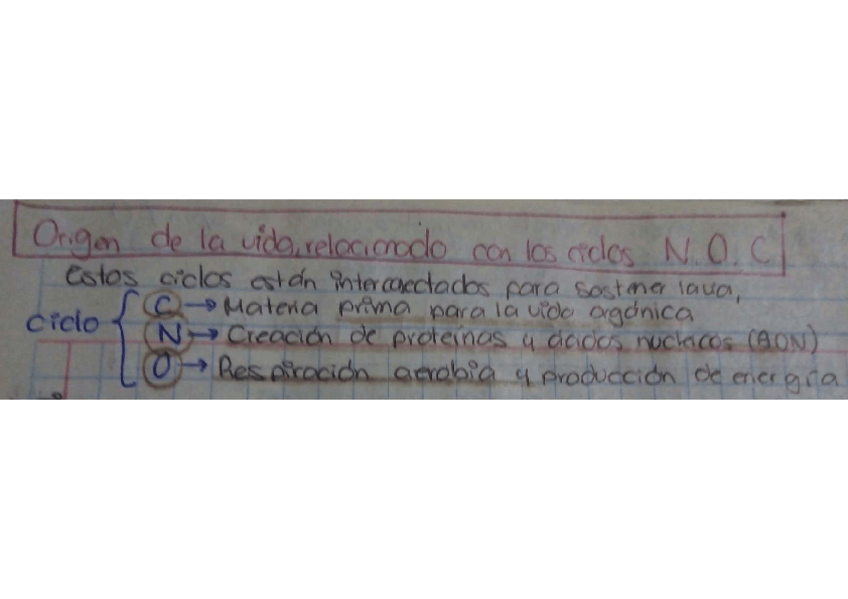 Origen de la vida, relacionado con los ciclos N.O.C
Estos ciclos están interconectados para sostener la
ciclo
C → Materia prima para la vida orgánica
N → Creación de proteínas y ácidos nucleicos (ADN)
O → Respiración aerobia y producción de energía